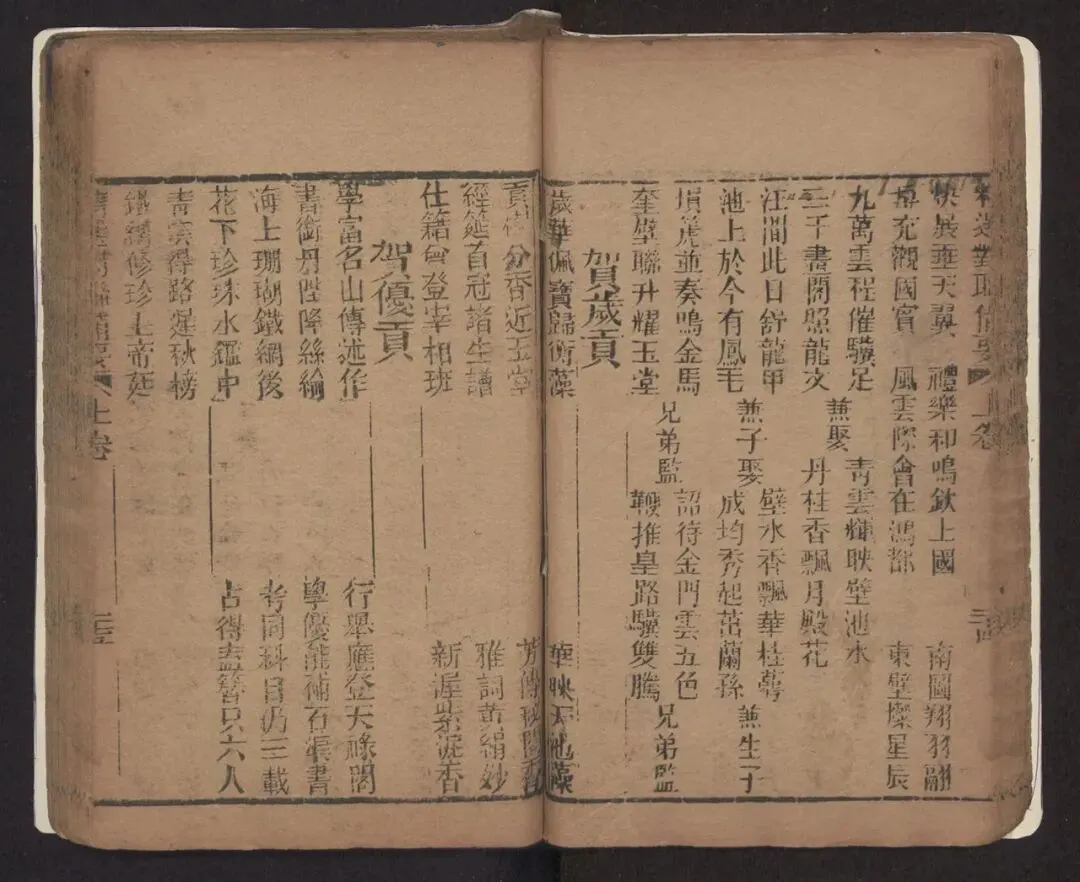 快展垂天翼 禮樂和鳴欽上國 南圖翔羽翮
觀國賓 風雲際會在鴻都 東壁燦星辰
九萬雲程催驥足 青雲輝映壁池水
兼娶
二千書閣照龍文 丹桂香飄月殿花
江間此日舒龍甲 壁水香飄華桂萼
兼子娶 兼生子
池上於今有鳳毛 成均秀起茁蘭孫
塤箎並奏鳴金馬 詔待金門雲五色
兄弟監 兄弟監
奎壁聯升耀玉堂 鞭推皇路驥雙騰
賀歲貢
歲華佩寶歸衡藻 華映天池藻
分香近玉堂 芳傳
經筵首冠諸生譜 雅詞黃絹妙
仕籍會登宰相班 新渥紫泥香
賀優貢
學富名山傳述作 行舉應登天祿閣
書銜丹陛降絲綸 學優能補石渠書
海上珊瑚鐵網後 考同科目仍三載
花下珍珠水鑑中 占得盍簪只六人
青雲得路遲秋榜
修珍上帝廷
上卷